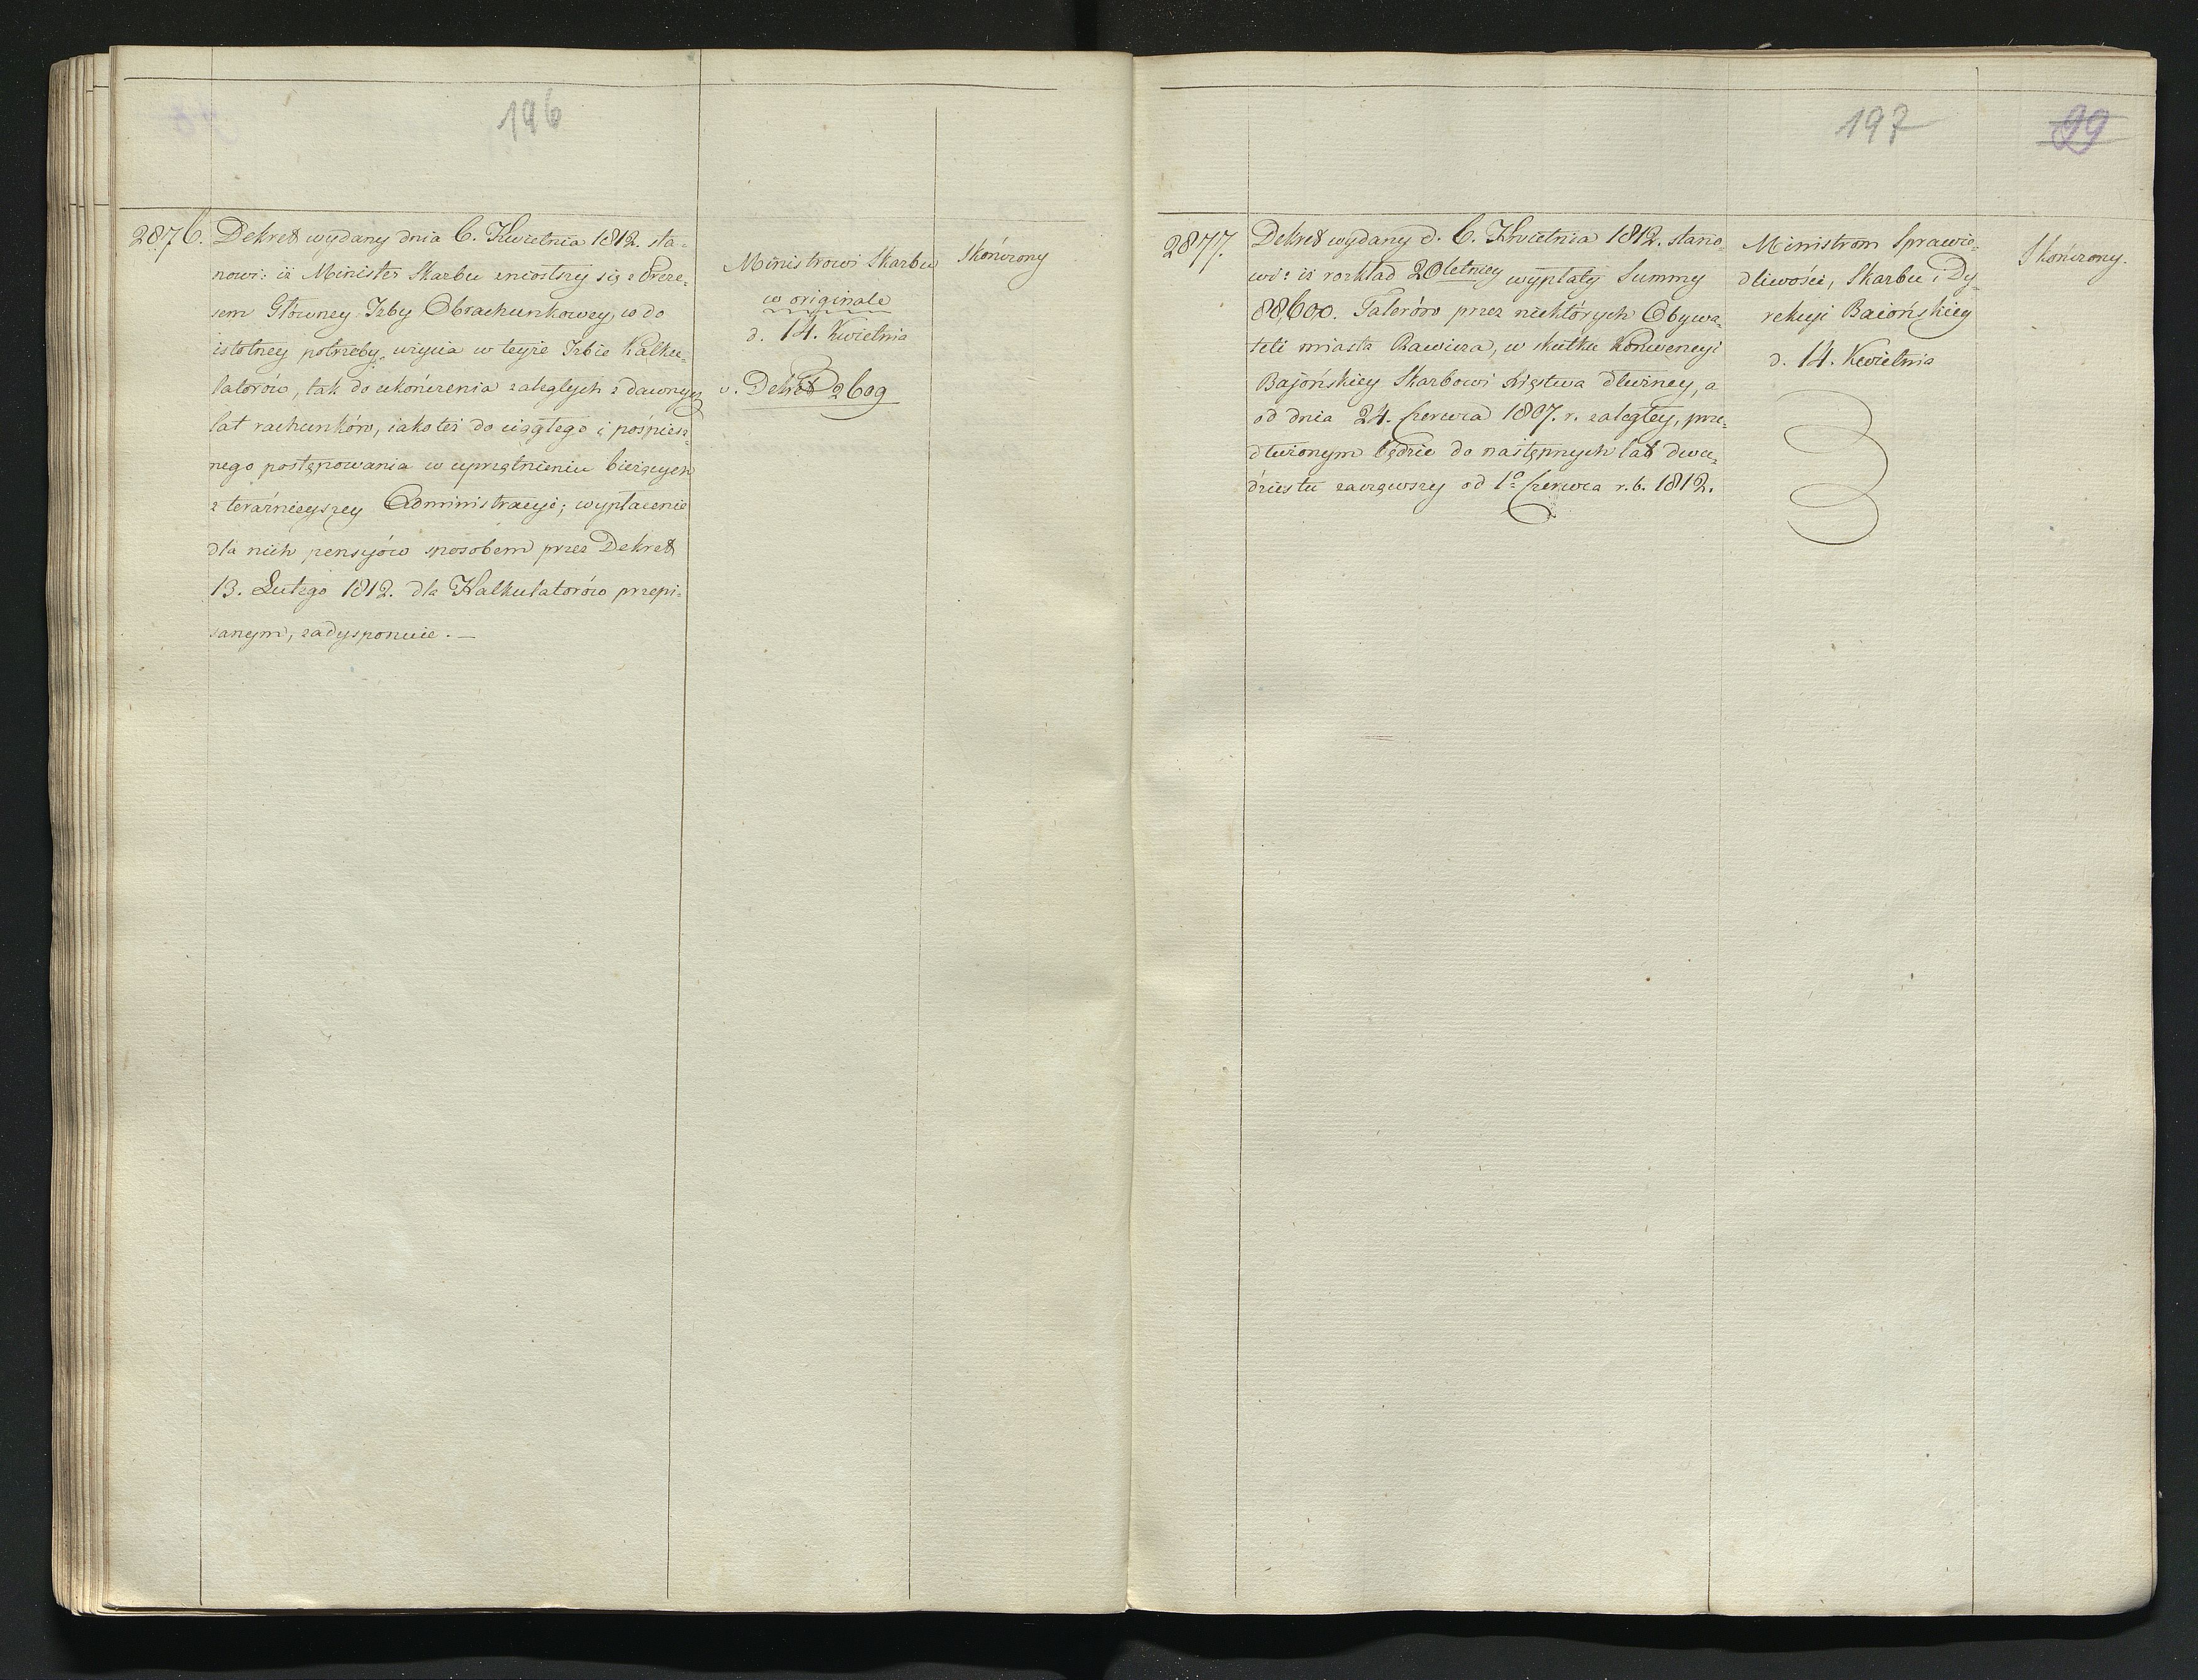 196
2876.
Dekret wydany dnia 6. Kwietnia 1812. sta-
nowi: iż Minister Skarbu zniosłszy się z Preze-
sem Główney Izby Obrachunkowey, co do
istotney potrzeby użycia w teyże Izbie Kalku-
latorów, tak do ukończenia zaległych z dawnych
lat rachunków, iako też do ciągłego i pośpiesz-
nego postępowania w uprzątnieniu bieżących
z teraźnieyszey Administracyi; wypłacenie
dla nich pensyiów sposobem przez Dekret
13. Lutego 1812. dla Kalkulatorów przepi-
sanym, zadysponuie. —
Ministrowi Skarbu
w originale
d. 14. Kwietnia
v. Dekret 2609
Skończony
197
99
2877.
Dekret wydany d. 6. Kwietnia 1812. stano-
wi: iż rozkład 20letniey wypłaty Summy
88,600. Talerów przez niektórych Obywa-
teli miasta Rawicza, w skutku Konwencyi
Bajońskiey Skarbowi Xięstwa dłużney, a
od dnia 24. Czerwca 1807. r. zaległey, prze-
dłużonym będzie do następnych lat dwu-
dziestu zacząwszy od 1o Czerwca r. b. 1812.
Ministrom Sprawie-
dliwości, Skarbu i Dy-
rekcyi Baiońskiey
d. 14. Kwietnia
Skończony.